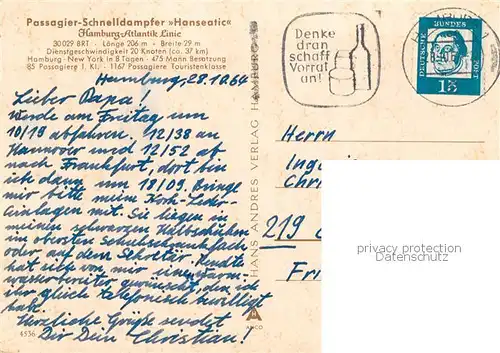 Passagier-Schnelldampfer »Hanseatic«
Hamburg-Atlantik Linie
30 029 BRT - Länge 206 m - Breite 29 m
Dienstgeschwindigkeit 20 Knoten (ca. 37 km)
Hamburg - New York in 8 Tagen · 475 Mann Besatzung
85 Passagiere I. Kl. · 1167 Passagiere Touristenklasse
Hamburg, 28.10.64
Lieber Papa!
Werde am Freitag um
10/19 abfahren. 12/38 an
Hannover und 12/52 ab
nach Frankfurt, dort bin
ich dann um 18/09. Bringe
mir bitte meine Kork-Leder-
Einlagen mit. Sie liegen in
meinen schwarzen Halbschuhen
im obersten Schuhschrankfach
oder auf dem Sekretär.
hat sich von mir einen Warm-
wasserbereiter gewünscht, den ich
ihr gleich telefonisch bewilligt
habe.
Herzliche Grüße sendet
Dir Dein Christian!
4536
HANS ANDRES VERLAG HAMBURG
ANCO
Denke
dran
schaff
Vorrat
an!
DEUTSCHE
BUNDES
POST
15
Herrn
Chr
219
privacy protection
Datenschutz